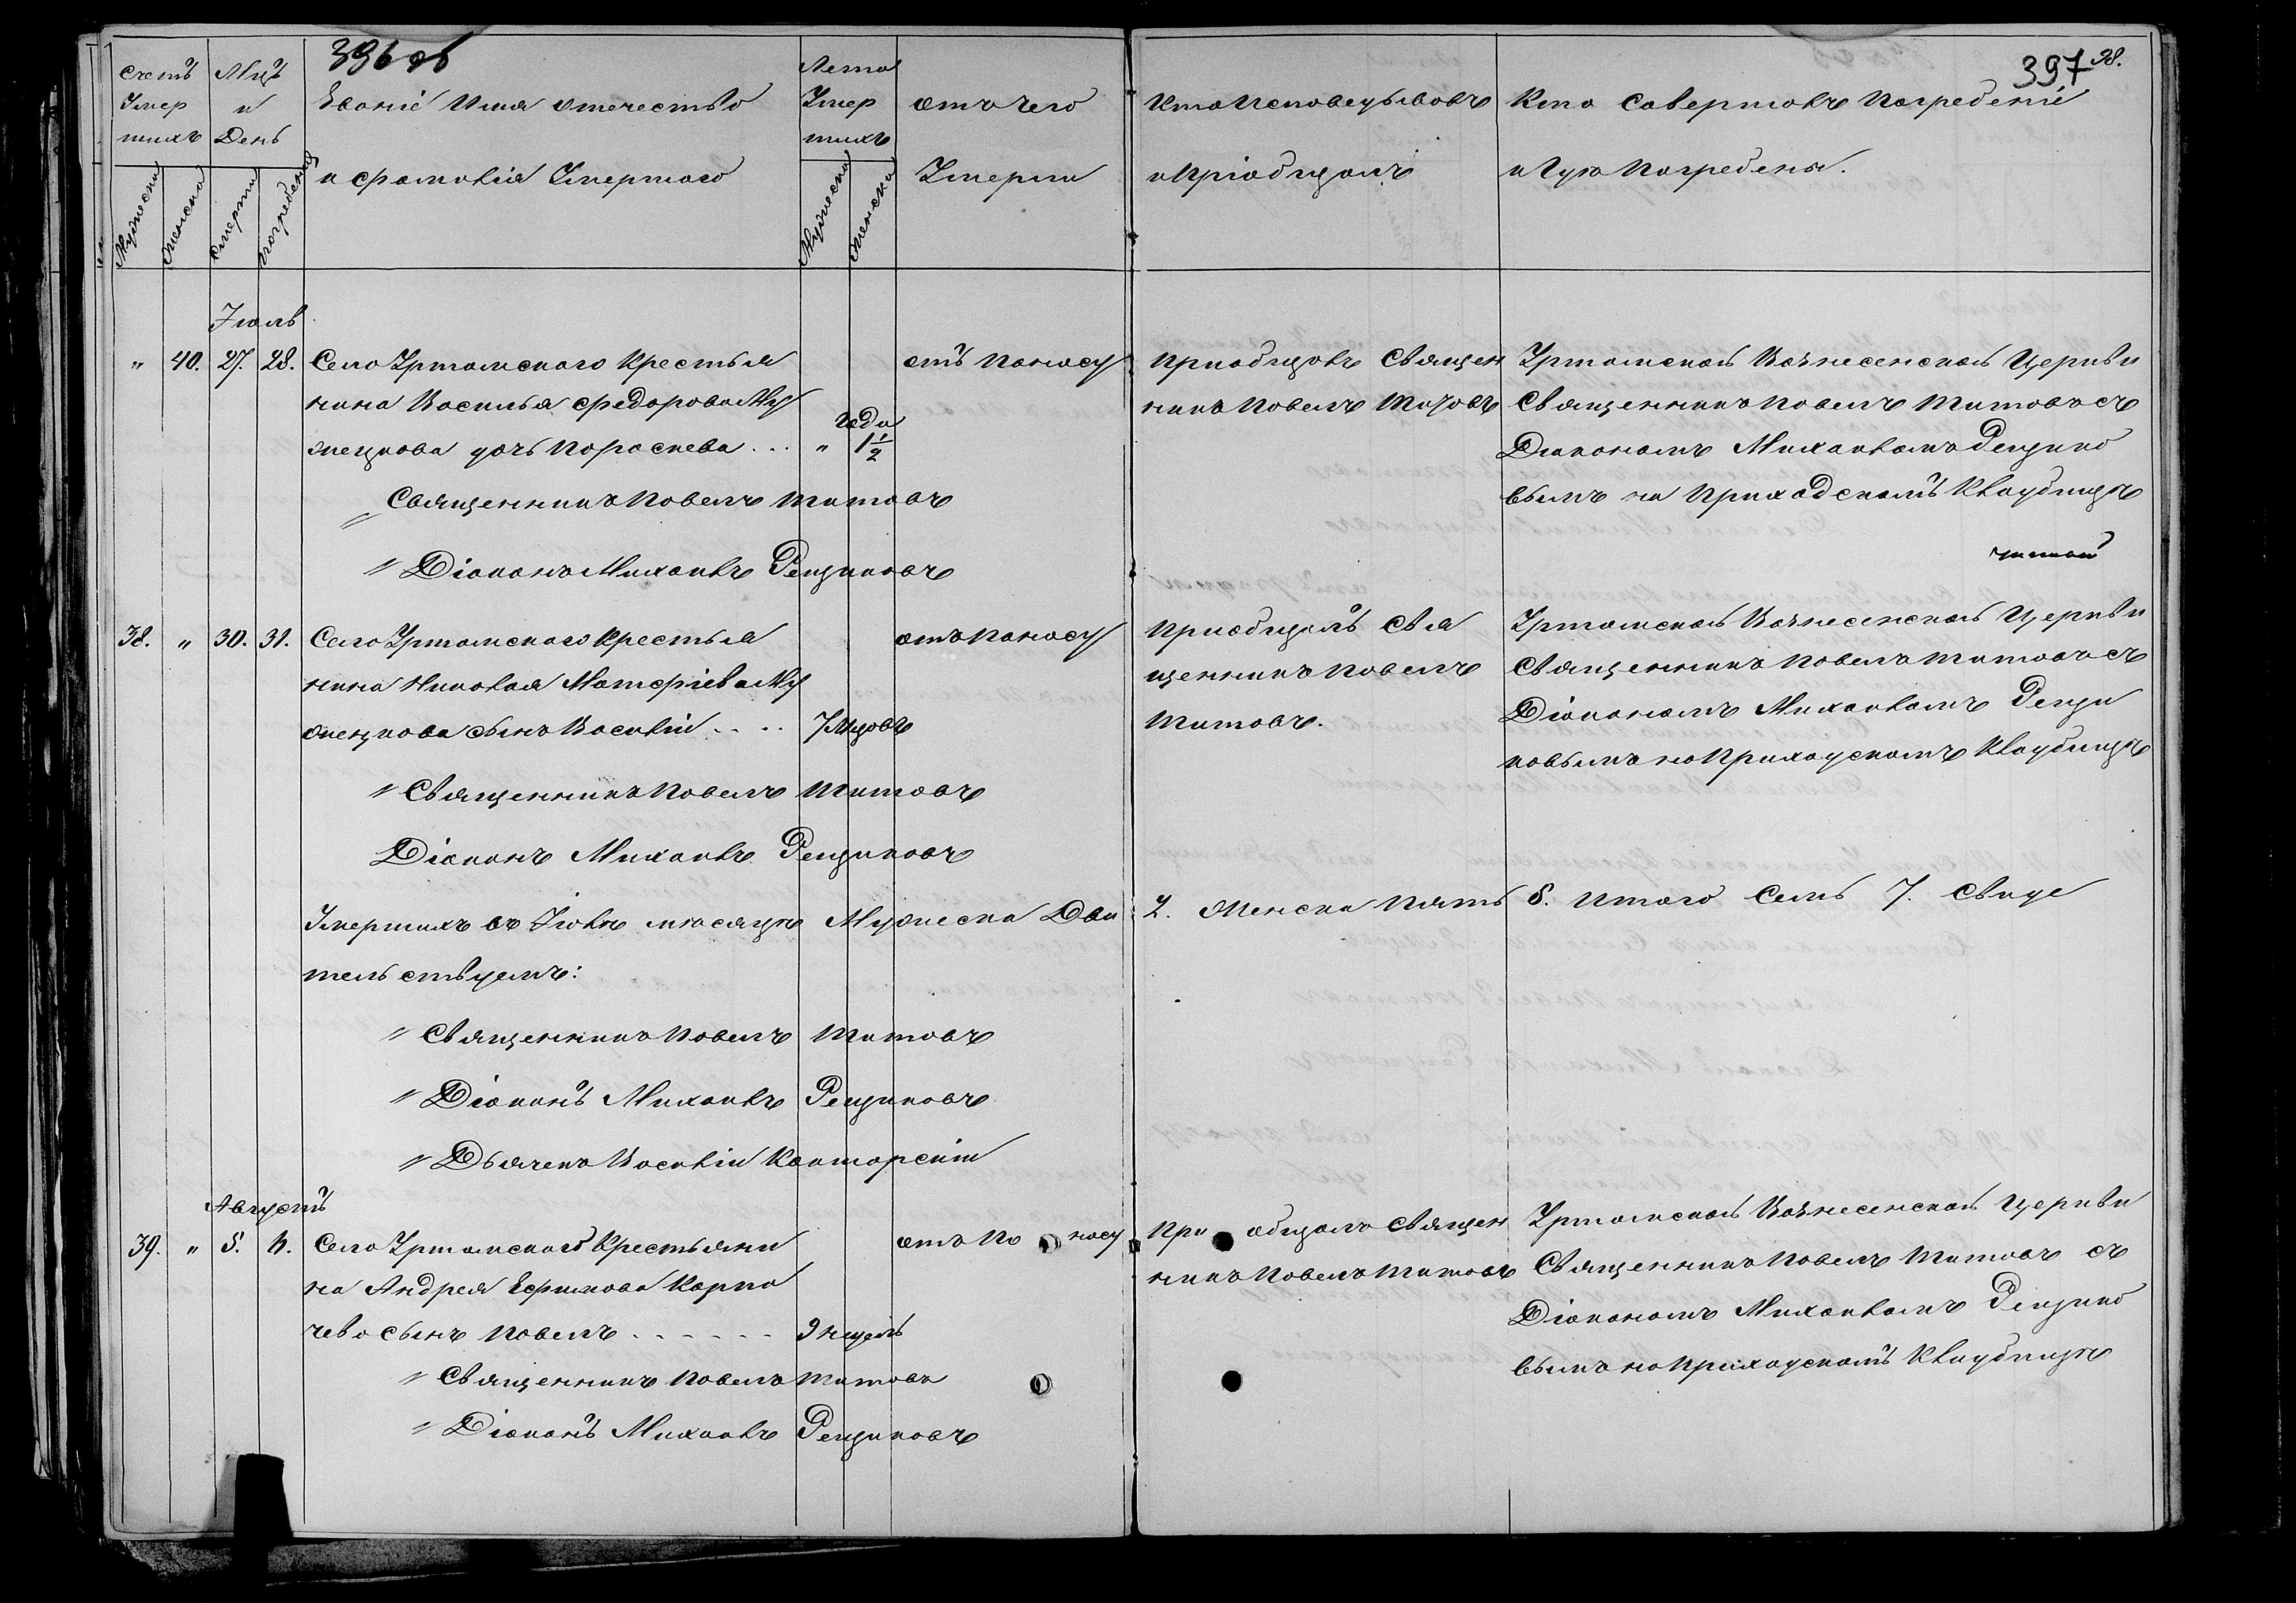 396 об
397 38.
Счетъ Умер шихъ
Мцъ и День
Званіе Имя отечество и фамилія Умершаго
Лета Умер шихъ
отъ чего Умерли
Кто Исповедывовъ и Пріобщалъ
Кто Савершовъ Погребеніе и Гдѣ Погребены.
Мужеска
Женска
Смерти
погребенія
Мужеска
Женска
Іюль
" 40. 27. 28. Села Уртамскаго Крестья
нина Василья Федорова Му
жецкова дочь Пораскева . . . " года 1 1/2
отъ Поносу
Приобщовъ Священ
никъ Повелъ Титовъ
Уртамской Вознесенской Церкви
Священникъ Повелъ Титовъ съ
Диаконамъ Михаиломъ Рещико
вымъ на Приходскомъ Клаубищѣ
" Священникъ Повелъ Титовъ
" Діаконъ Михаилъ Рещиковъ
38. " 30. 31. Села Уртамскаго Крестья
нина Николая Матеріева Му
жецкова сынъ Василій . . . . 7 Мцовъ
отъ Поносу
Приобщалъ Свя
щенникъ Повелъ
Титовъ.
Уртамской Вознесенской Церкви
Священникъ Повелъ Титовъ съ
Діаконамъ Михаиломъ Рещи
ковымъ на Приходскомъ Клаубищѣ
" Священникъ Повелъ Титовъ
Діаконъ Михаилъ Рещиковъ
Умершихъ въ Іюлѣ мѣсяцѣ Мужеска Два 2. Женска Пять 5. Итого Семь 7. Свиде
тельствуемъ:
" Священникъ Повелъ Титовъ
" Діаконъ Михаилъ Рещиковъ
" Дьячекъ Василій Канторскій
Августъ
39. " 5. 6. Села Уртамскаго Крестьяни
на Андрея Ефимова Карпа
чева сынъ Повелъ . . . . . . 9 недель
отъ По носу
При общалъ Священ
никъ Повелъ Титовъ
Уртамской Вознесенской Церкви
Священникъ Повелъ Титовъ съ
Діаконамъ Михаиломъ Рещико
вымъ на Приходскомъ Клаубищѣ
" Священникъ Повелъ Титовъ
" Діаконъ Михаилъ Рещиковъ